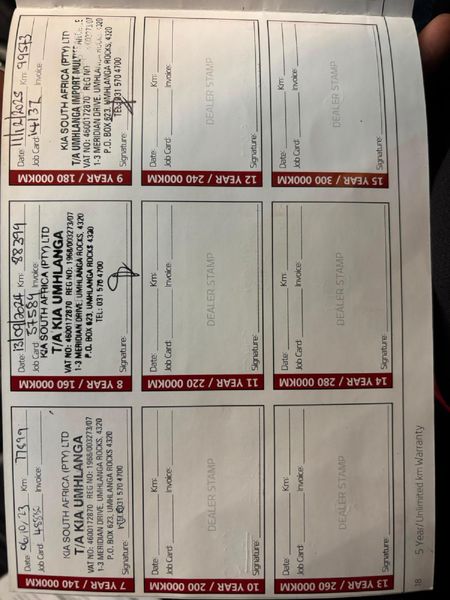 7 YEAR / 140 000KM
Date: Km: 77599
Job Card: Invoice:
KIA SOUTH AFRICA (PTY) LTD
T/A KIA UMHLANGA
VAT NO: 4600172870 REG NO: 1968/003273/07
1-3 MERIDIAN DRIVE, UMHLANGA ROCKS, 4320
P.O. BOX 623, UMHLANGA ROCKS 4320
TEL: 031 570 4700
Signature:
8 YEAR / 160 000KM
Date: 13/09/2024 Km: 88399
Job Card: 57589 Invoice:
KIA SOUTH AFRICA (PTY) LTD
T/A KIA UMHLANGA
VAT NO: 4600172870 REG NO: 1968/003273/07
1-3 MERIDIAN DRIVE, UMHLANGA ROCKS, 4320
P.O. BOX 623, UMHLANGA ROCKS 4320
TEL: 031 570 4700
Signature:
9 YEAR / 180 000KM
Date: 11/12/2025 Km: 99573
Job Card: 14137 Invoice:
KIA SOUTH AFRICA (PTY) LTD
T/A UMHLANGA IMPORT
VAT NO: 4600172870 REG NO:
1-3 MERIDIAN DRIVE, UMHLANGA ROCKS, 4320
P.O. BOX 623, UMHLANGA ROCKS, 4320
TEL: 031 570 4700
Signature:
10 YEAR / 200 000KM
Date: Km:
Job Card: Invoice:
DEALER STAMP
Signature:
11 YEAR / 220 000KM
Date: Km:
Job Card: Invoice:
DEALER STAMP
Signature:
12 YEAR / 240 000KM
Date: Km:
Job Card: Invoice:
DEALER STAMP
Signature:
13 YEAR / 260 000KM
Date: Km:
Job Card: Invoice:
DEALER STAMP
Signature:
14 YEAR / 280 000KM
Date: Km:
Job Card: Invoice:
DEALER STAMP
Signature:
15 YEAR / 300 000KM
Date: Km:
Job Card: Invoice:
DEALER STAMP
Signature:
18 5 Year/Unlimited km Warranty